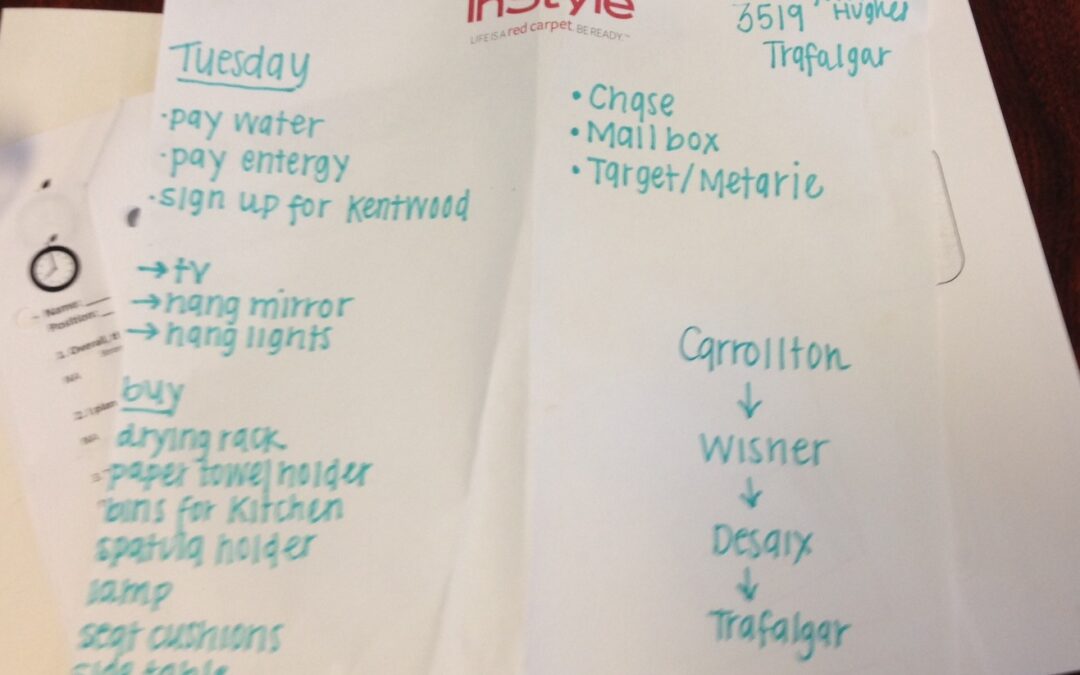 InStyle
LIFE IS A red carpet. BE READY.™
Tuesday
·pay water
·pay entergy
·sign up for Kentwood
→tv
→hang mirror
→hang lights
buy
drying rack
paper towel holder
bins for Kitchen
spatula holder
lamp
seat cushions
side table
3519 Hughes
Trafalgar
•Chase
•Mailbox
•Target/Metarie
Carrollton
↓
Wisner
↓
Desaix
↓
Trafalgar
Name:
Position:
1. Overall,
NA
2. I plan
NA